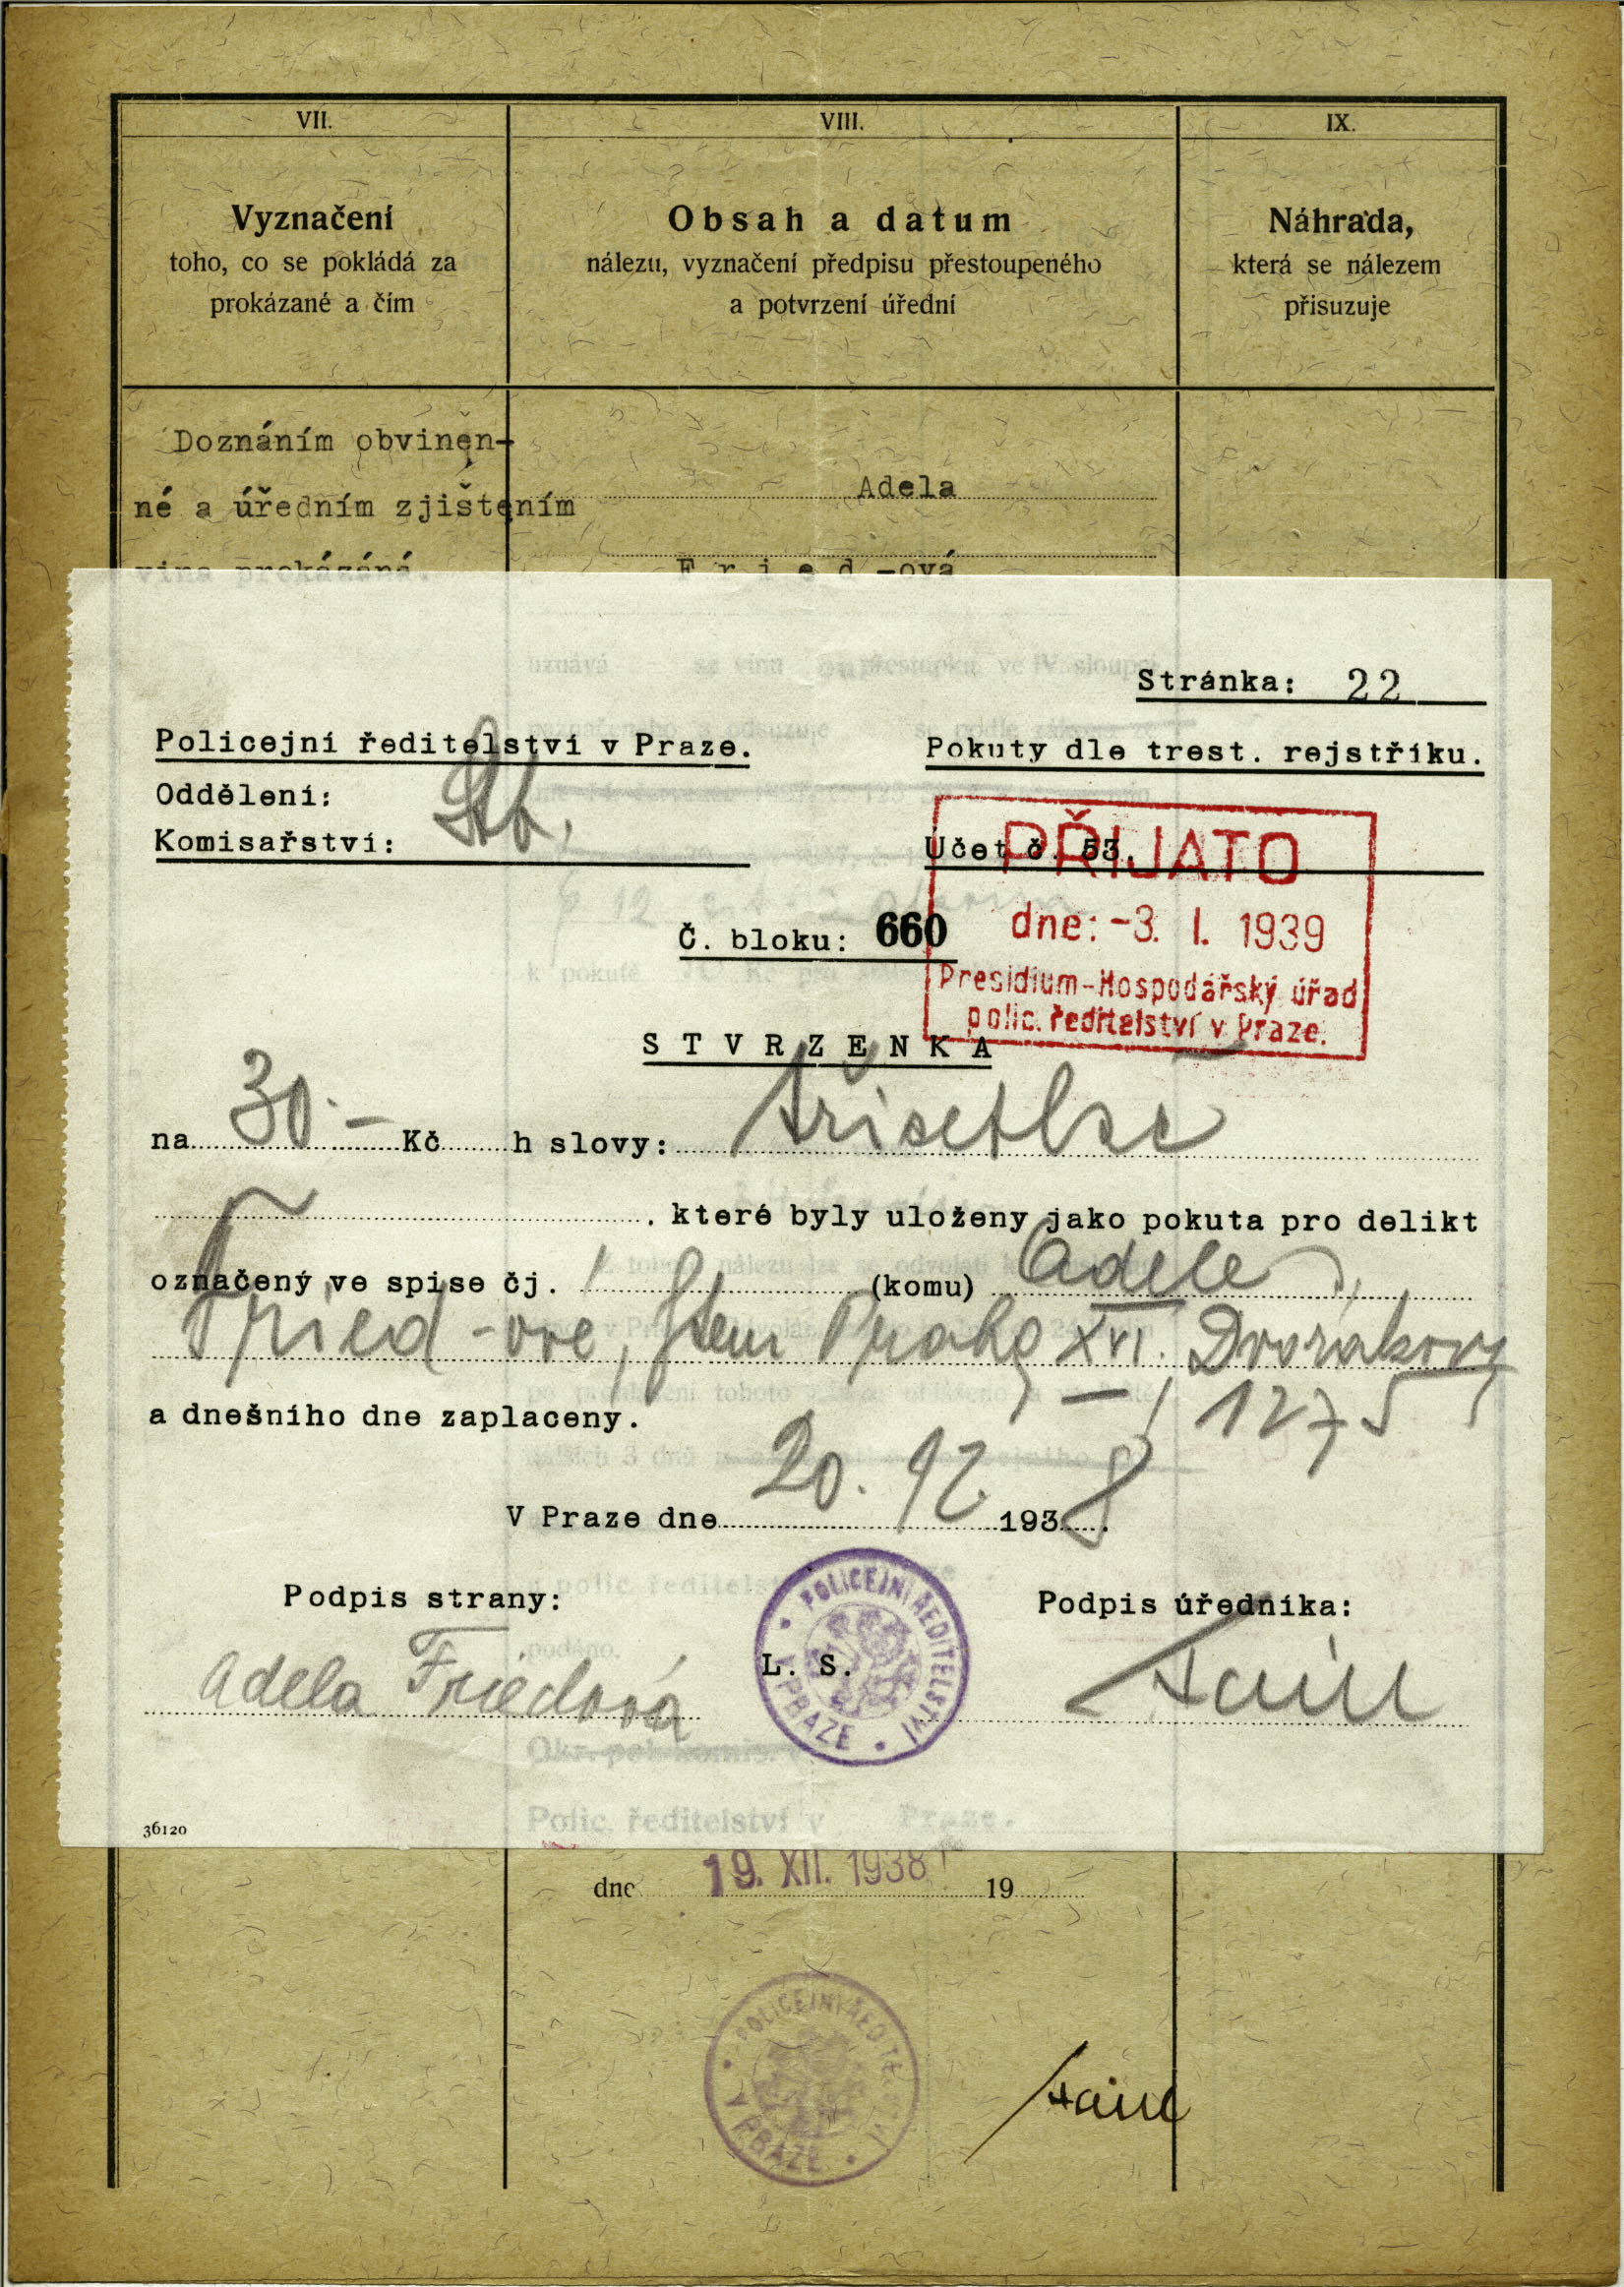 VII.
VIII.
IX.
Vyznačení
toho, co se pokládá za
prokázané a čím
Obsah a datum
nálezu, vyznačení předpisu přestoupeného
a potvrzení úřední
Náhrada,
která se nálezem
přisuzuje
Doznáním obviněn-
né a úředním zjištěním
vina prokázána.
Adela
Fried-ová
uznává se vinu přestupku ve IV sloupci
Stránka: 22
Policejní ředitelství v Praze.
Pokuty dle trest. rejstříku.
Oddělení:
Komisařství:
Účet č. 53.
PŘIJATO
dne: -3. I. 1939
Presidium-Hospodářský úřad
polic. ředitelství v Praze.
Č. bloku: 660
k pokutě
STVRZENKA
na 30.- Kč h slovy: třicet
. které byly uloženy jako pokuta pro delikt
označený ve spise čj. / (komu) Adele
Fried-ové, Praha XVI. Dvořákova
1275
a dnešního dne zaplaceny.
V Praze dne 20. 12. 1938.
Podpis strany:
Podpis úředníka:
POLICEJNÍ ŘEDITELSTVÍ
V PRAZE
L. S.
Adela Friedová
Polic. ředitelství v Praze.
36120
dne 19. XII. 1938 19
POLICEJNÍ ŘEDITELSTVÍ
V PRAZE